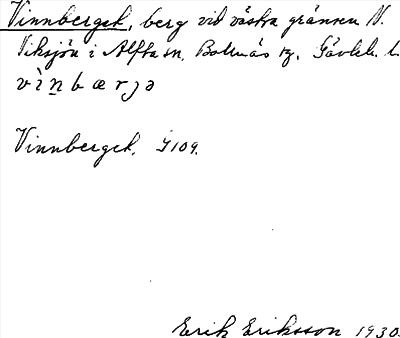 Vinnberget, berg vid västra gränsen N.
Viksjön i Alfta sn, Bollnäs tg. Gävleb. l.
vìnbærjə
Vinnberget. G109.
Erik Eriksson 1930.